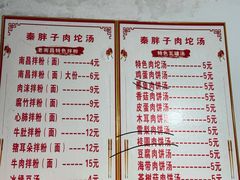 秦胖子肉坨汤
老南昌特色拌粉
南昌拌粉（面）4元
南昌拌粉（面）大份6元
肉沫拌粉（面）9元
腐竹拌粉（面）9元
心肺拌粉（面）12元
牛肚拌粉（面）12元
猪耳朵拌粉（面）12元
牛肉拌粉（面）15元
秦胖子肉坨汤
特色瓦罐汤
特色肉坨汤5元
鸡蛋肉饼汤5元
香菇肉饼汤5元
皮蛋肉饼汤5元
木耳肉饼汤5元
豆腐肉饼汤5元
海带肉饼汤5元